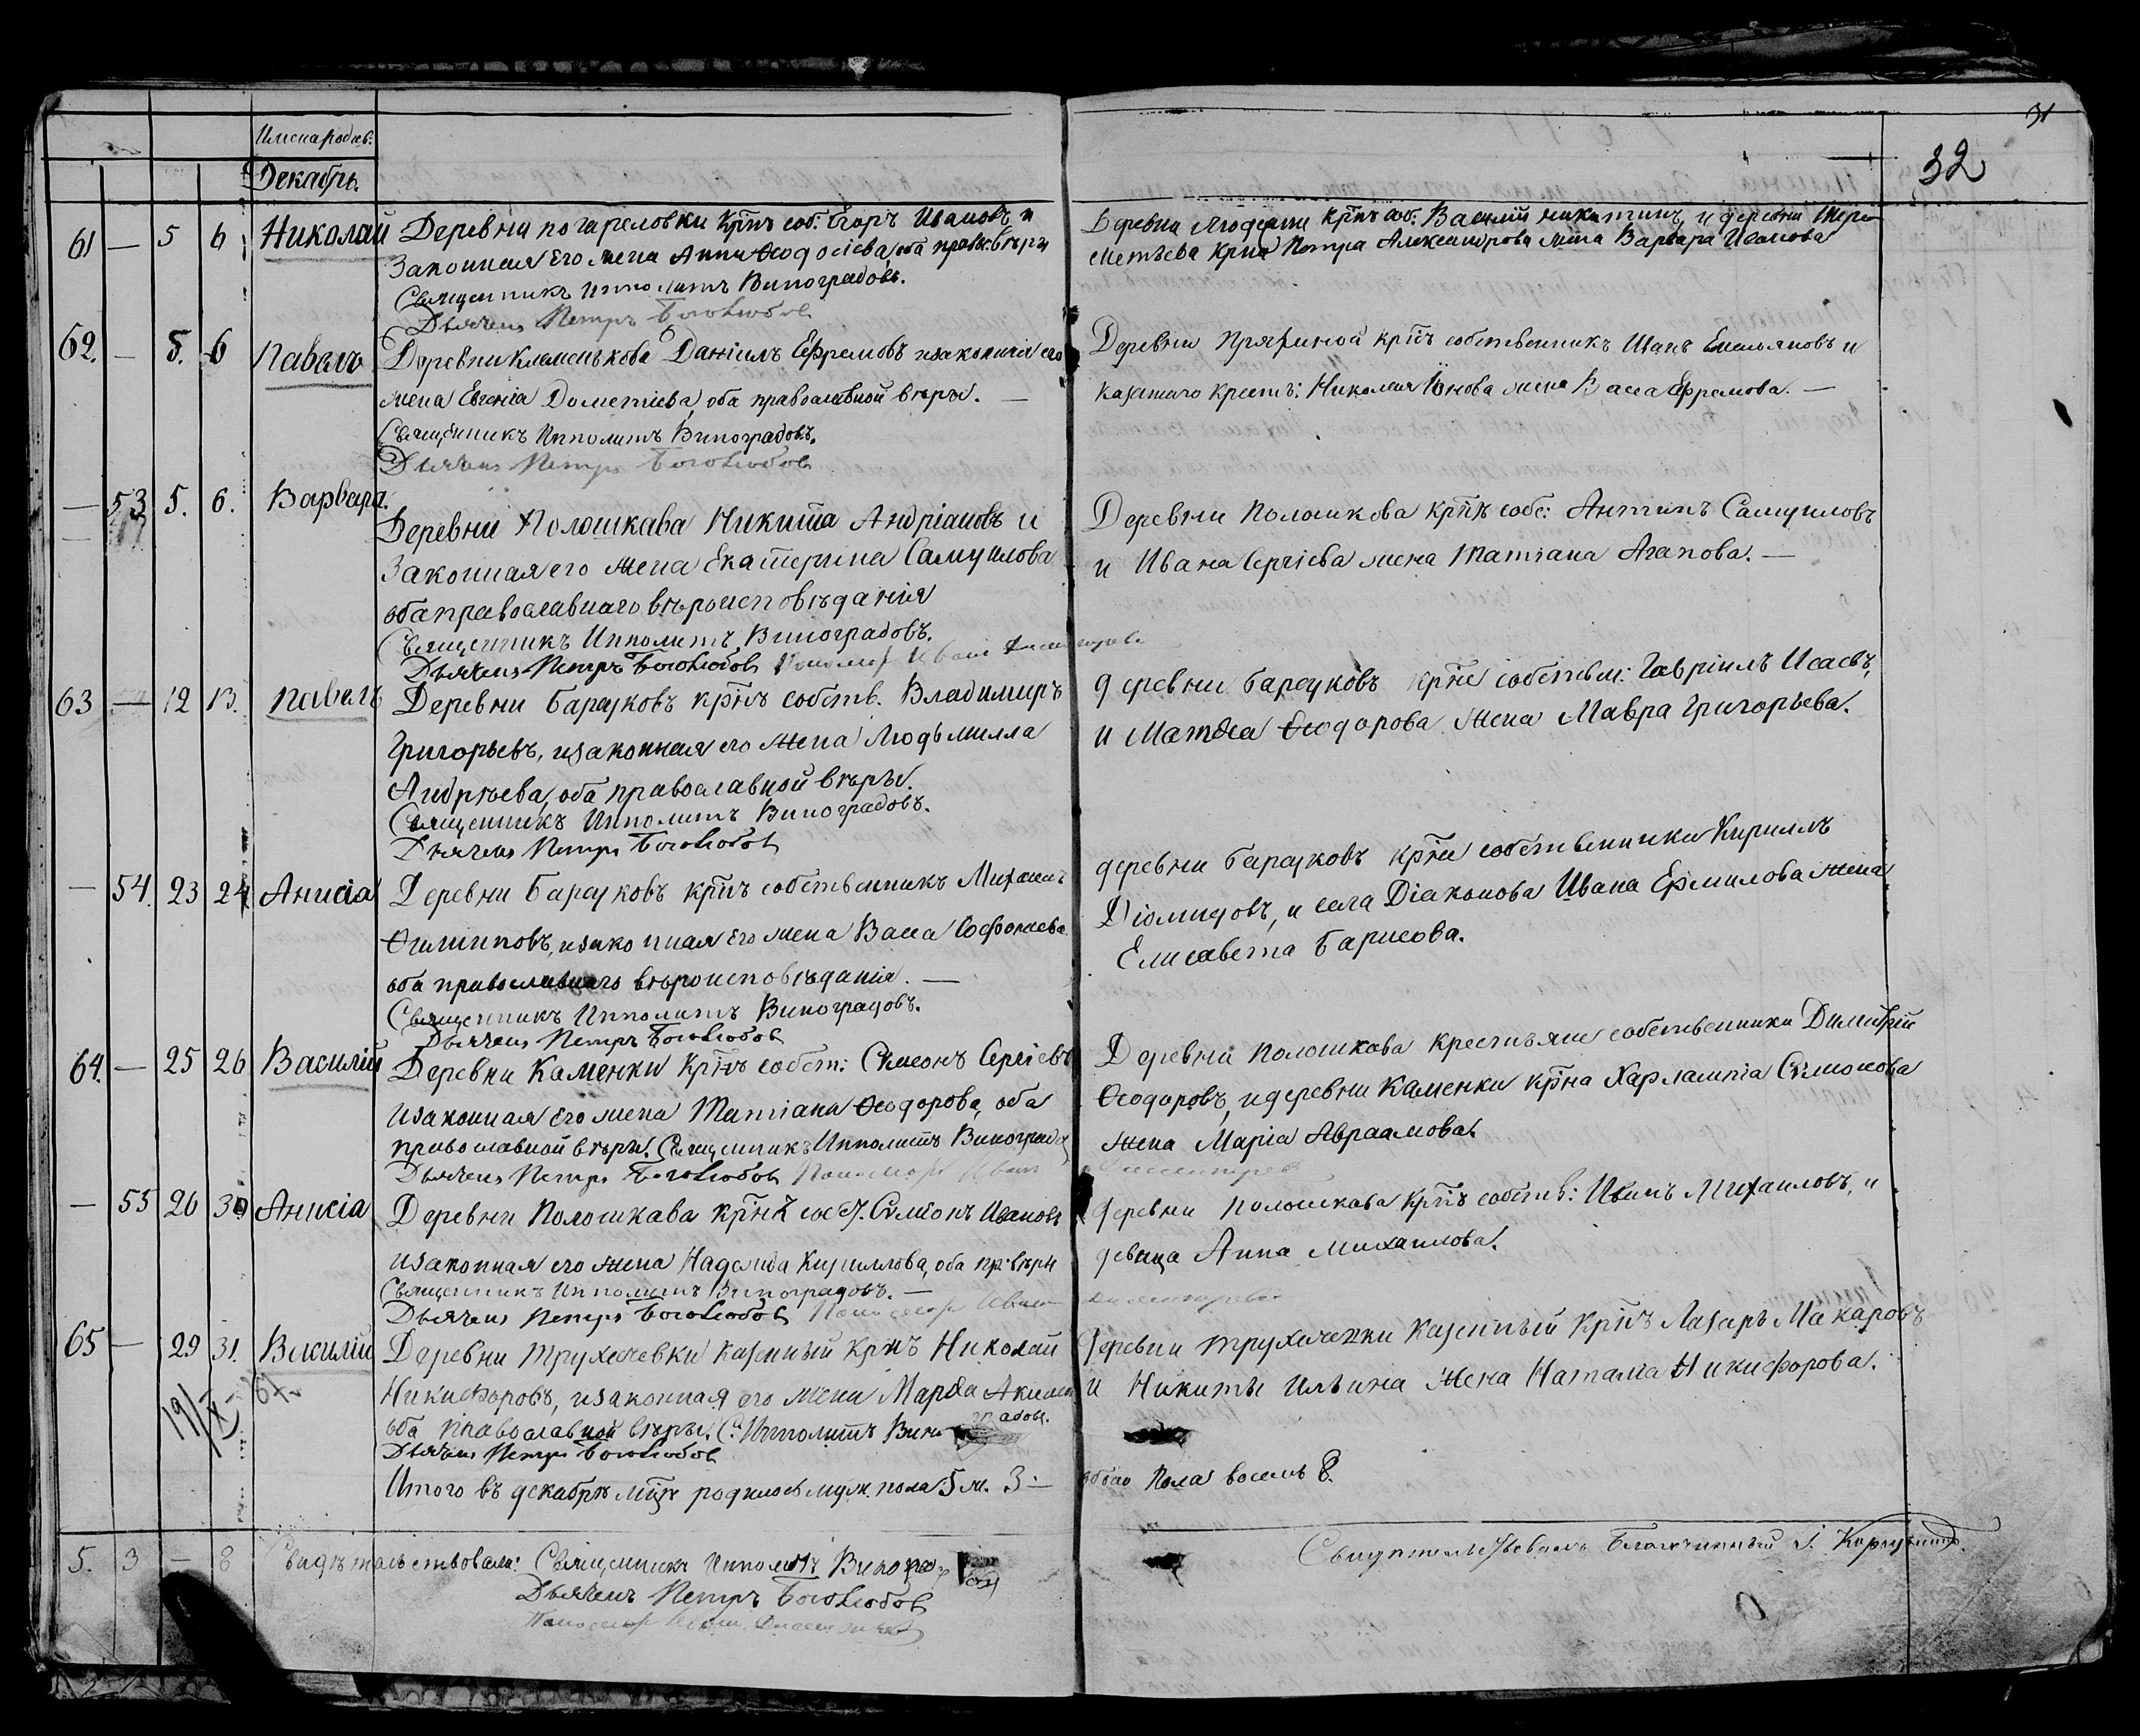 31
32
Имена родив:
Декабрь.
61 — 5 6 Николай Деревни погареловки Крнъ соб: Егоръ Ивановъ и
Законная Его жена Анна Ѳеодосіева, оба прав: вѣры
Священникъ Ипполитъ Виноградовъ.
Дьячекъ Петръ Боголюбовъ
Деревни Крнъ соб: Василій никитинъ, и деревни Шере
метьева Крна Петра Александрова жена Варвара Иванова
62. — 5. 6 Павелъ Деревни Клеменькова Даніилъ Ефремовъ и законная его
жена Евгенія Дометіева, оба православной вѣры. —
Священникъ Ипполитъ Виноградовъ.
Дьячекъ Петръ Боголюбовъ
Деревни крнъ собственникъ Иванъ Емельяновъ и
казеннаго крест: Николая Іонова жена Васса Ефремова. —
— 53 5. 6. Варвара.
Деревни Полошкава Никита Андріановъ и
Законная его жена Екатерина Самуилова
оба православнаго вѣроисповѣданія
Священникъ Ипполитъ Виноградовъ.
Дьячекъ Петръ Боголюбовъ Пономарь Иванъ
Деревни Полошкова крнъ собс: Антипъ Самуиловъ
и Ивана Сергіева жена Татіана Агапова. —
63 — 12 13. Павелъ Деревни Барсуковъ крнъ собств. Владимиръ
Григорьевъ, и законная его жена Людьмилла
Андрѣева, оба православной вѣры.
Священникъ Ипполитъ Виноградовъ.
Дьячекъ Петръ Боголюбовъ
деревни Барсуковъ крне собствен: Гавріилъ Исаевъ,
и Матѳеа Ѳеодорова жена Мавра Григорьева.
— 54. 23 24 Анисіа Деревни Барсуковъ крнъ собственникъ Михаилъ
Ѳилиповъ, и законная Его жена Васса Софоніева
оба православнаго вѣроисповѣданія. —
Священникъ Ипполитъ Виноградовъ.
Дьячекъ Петръ Боголюбовъ
деревни Барсуковъ крне собственники Кириллъ
Діомидовъ, и села Діаконова Ивана Ермилова жена
Елисавета Барисова.
64. — 25 26 Василій Деревни Каменки Крнъ собст: Сѵмеонъ Сергіевъ
и законная Его жена Татіана Ѳеодорова, оба
православной вѣры. Священникъ Ипполитъ Виноградо
Дьячекъ Петръ Боголюбовъ Пономарь Иванъ
Деревни Полошкава крестьяне собственники Димитрій
Ѳеодоровъ, и деревни Каменки крна Харлампіа Сѵмонова
жена Маріа Авраамова.
— 55 26 30 Анисіа Деревни Полошкава крнъ соб. Сѵмеонъ Ивановъ
и законная его жена Надежда Кириллова, оба пр: вѣры
Священникъ Ипполитъ Виноградовъ. —
Дьячекъ Петръ Боголюбовъ Пономарь Иванъ
деревни Полошкава крнъ собств: Иванъ Михаиловъ, и
девица Анна Михаилова.
65 — 29 31. Василій Деревни Трухачевки казенный крнъ Николай
Никифоровъ, и законная его жена Марѳа
оба православной вѣры. С: Ипполитъ Виноградовъ.
Дьячекъ Петръ Боголюбовъ
деревни казенный крнъ Лазарь Макаровъ
и Никиты Ильина жена Наталіа Никифорова.
19/X-
Итого въ декабрѣ мцѣ родилось муж. пола 5 ж. 3 —
обого пола восемь 8.
5. 3 — 8 Свидѣтельствовали: Священникъ Ипполитъ Виноградовъ
Дьячекъ Петръ Боголюбовъ
Пономарь Иванъ
Свидѣтельствовалъ Благочинный